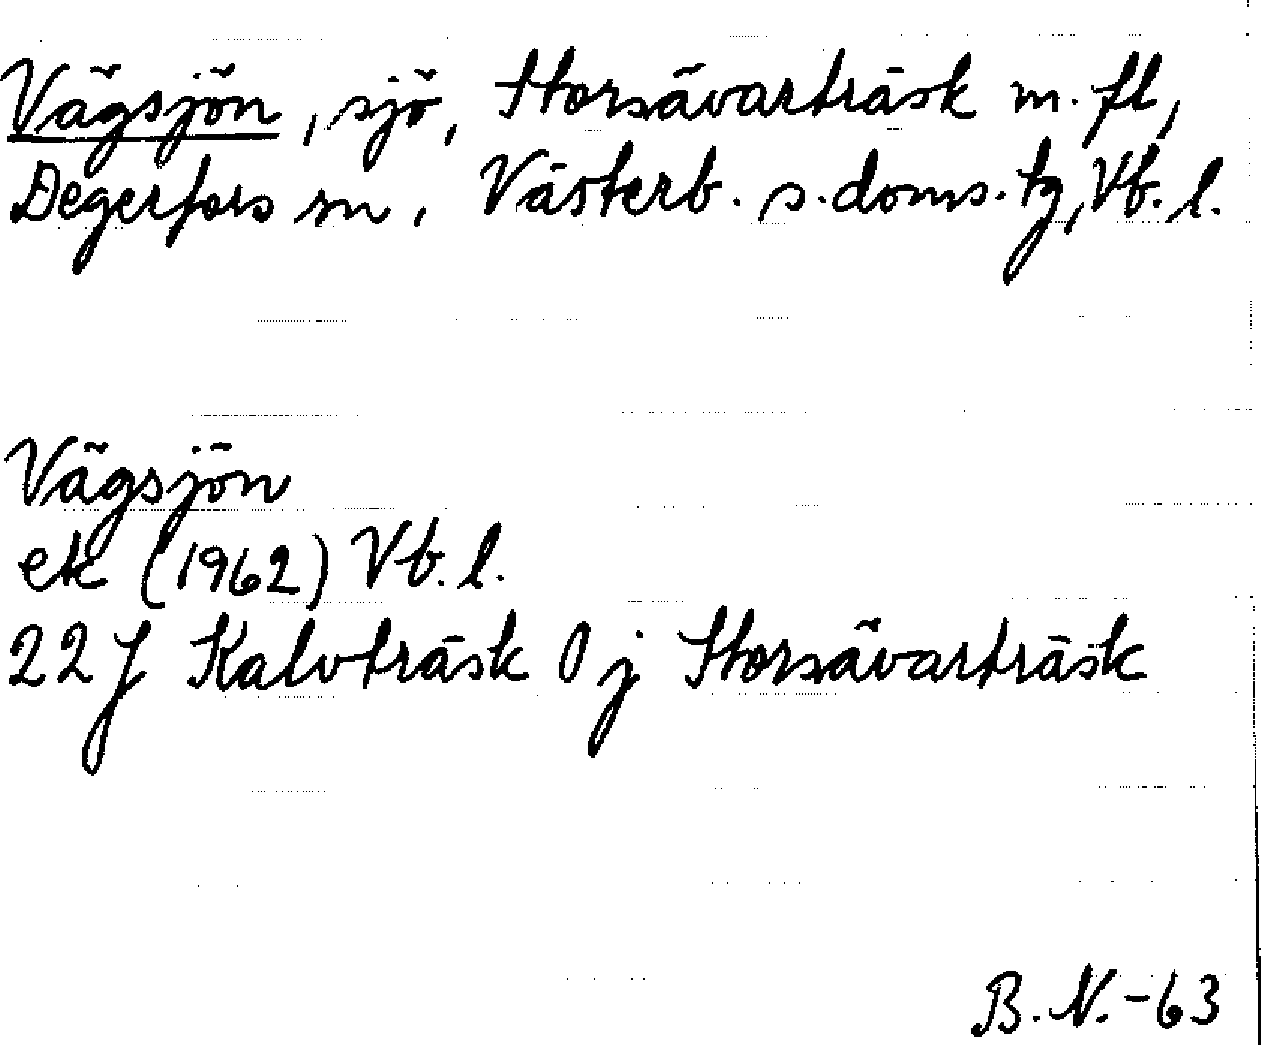 Vägsjön, sjö, Storsävarträsk m. fl,
Degerfors sn, Västerb. s. doms. tg, Vb. l.
Vägsjön
ek (1962) Vb. l.
22 J Kalvträsk 0 j Storsävarträsk
B. N. -63